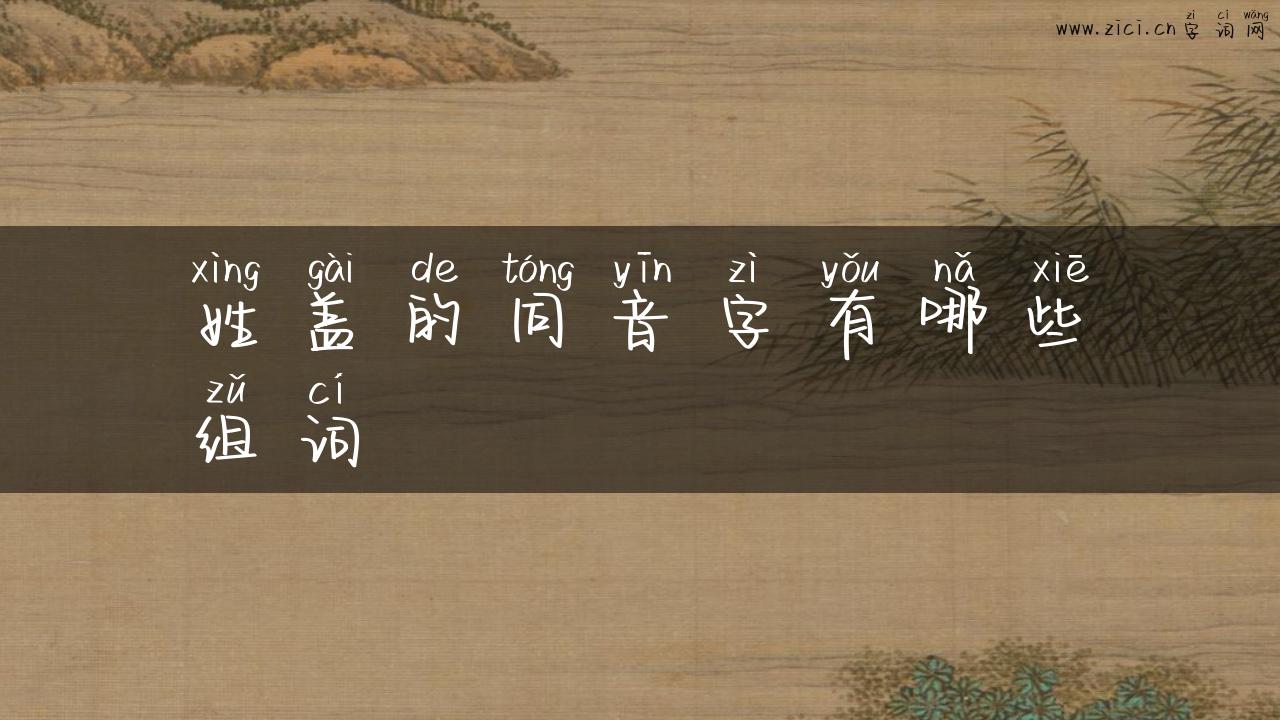 zì cí wǎng
www.zici.cn 字词网
xìng gài de tóng yīn zì yǒu nǎ xiē
姓盖的同音字有哪些
zǔ cí
组词